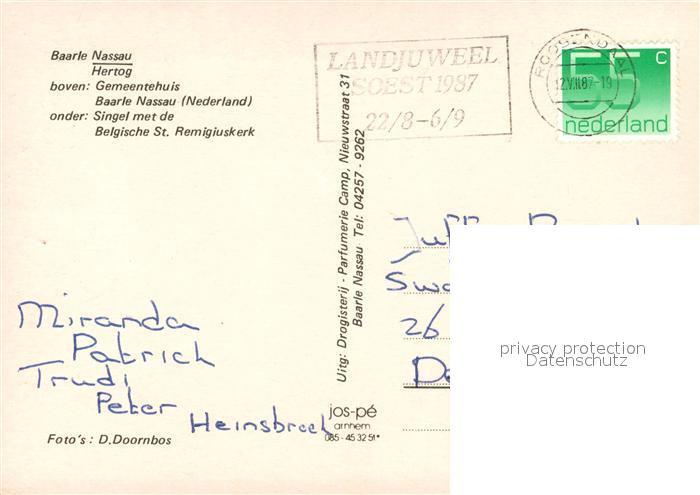 Baarle Nassau
Hertog
boven: Gemeentehuis
Baarle Nassau (Nederland)
onder: Singel met de
Belgische St. Remigiuskerk
LANDJUWEEL
SOEST 1987
22/8-6/9
ROOSENDAAL
12.VIII.87-19
55 c
nederland
Uitg: Drogisterij - Parfumerie Camp, Nieuwstraat 31
Baarle Nassau Tel: 04257 - 9262
Juf
26
privacy protection
Datenschutz
Miranda
Patrick
Trudi
Peter
Heinsbroek
jos-pé
arnhem
085-45 32 51*
Foto's : D.Doornbos